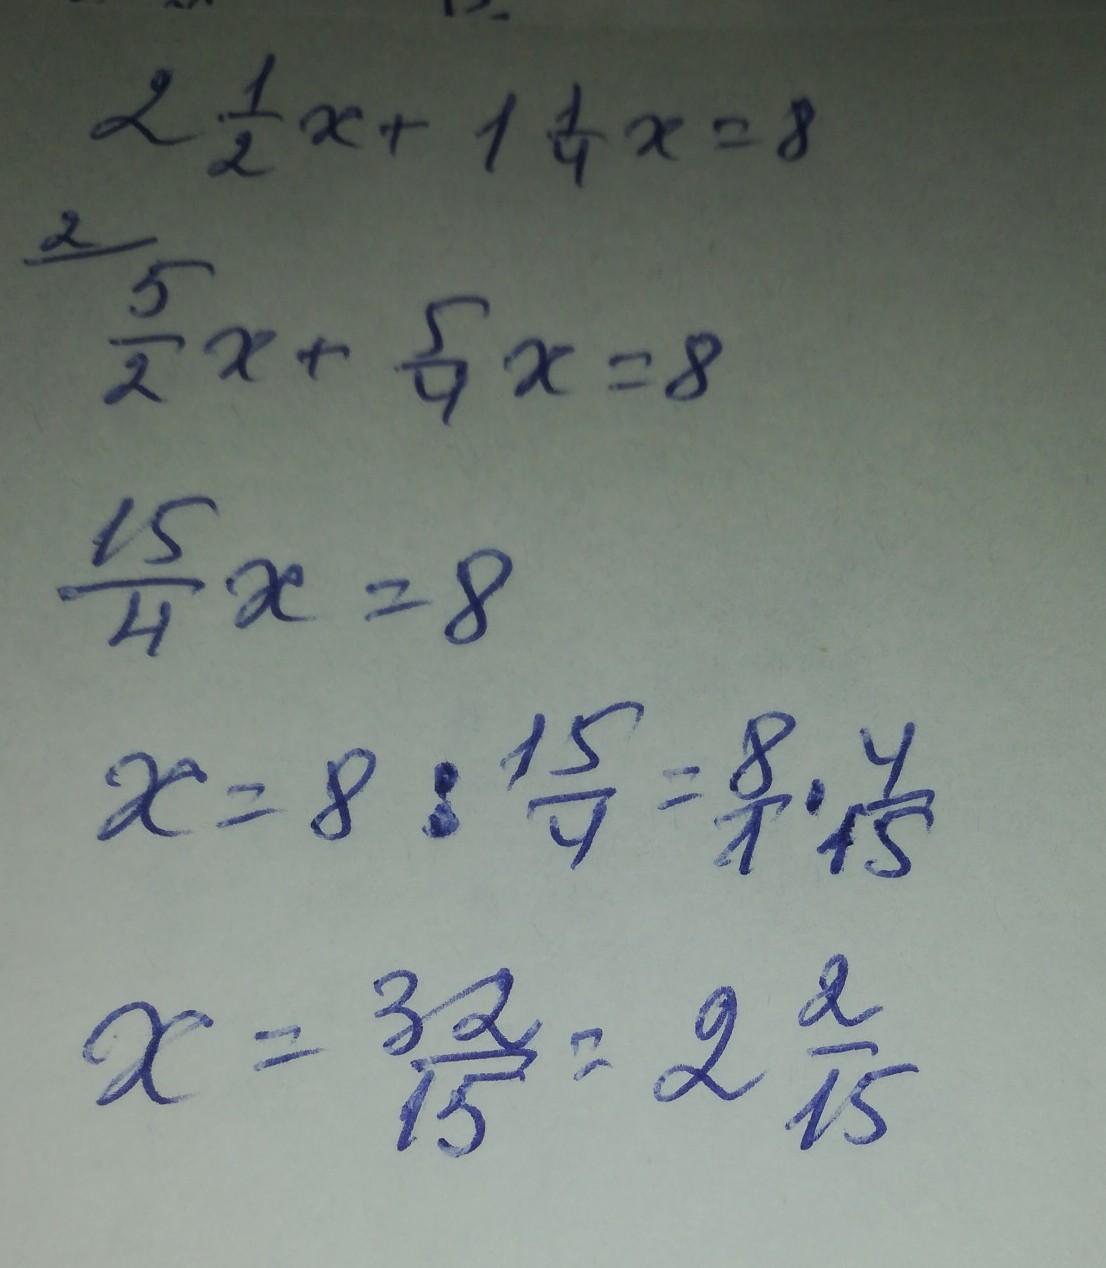 2 1/2 x + 1 1/4 x = 8
2
5/2 x + 5/4 x = 8
15/4 x = 8
x = 8 : 15/4 = 8/1 · 4/15
x = 32/15 = 2 2/15